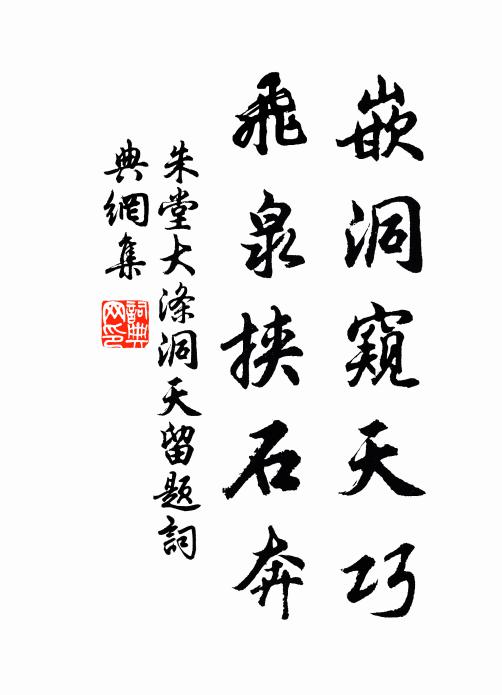 嵌洞窺天巧
飛泉挾石奔
朱堂大滌洞天留題詞
典網集
詞典網印